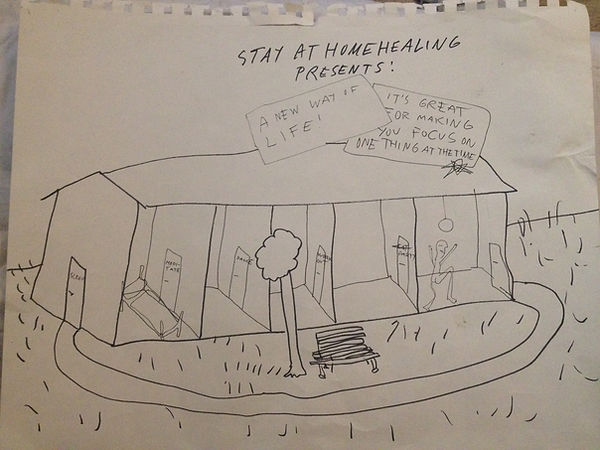 STAY AT HOMEHEALING
PRESENTS!
A NEW WAY OF
LIFE!
IT'S GREAT
FOR MAKING
YOU FOCUS ON
ONE THING AT THE TIME
SLEEP
MEDI
TATE
DANCE
OUT
PARTY